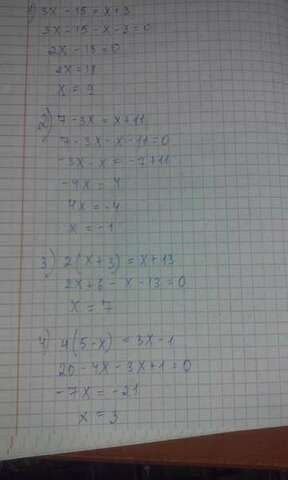 1) 3x - 15 = x + 3
3x - 15 - x - 3 = 0
2x - 18 = 0
2x = 18
x = 9
2) 7 - 3x = x + 11
7 - 3x - x - 11 = 0
-3x - x = -7 + 11
-4x = 4
4x = -4
x = -1
3) 2(x + 3) = x + 13
2x + 6 - x - 13 = 0
x = 7
4) 4(5 - x) = 3x - 1
20 - 4x - 3x + 1 = 0
-7x = -21
x = 3